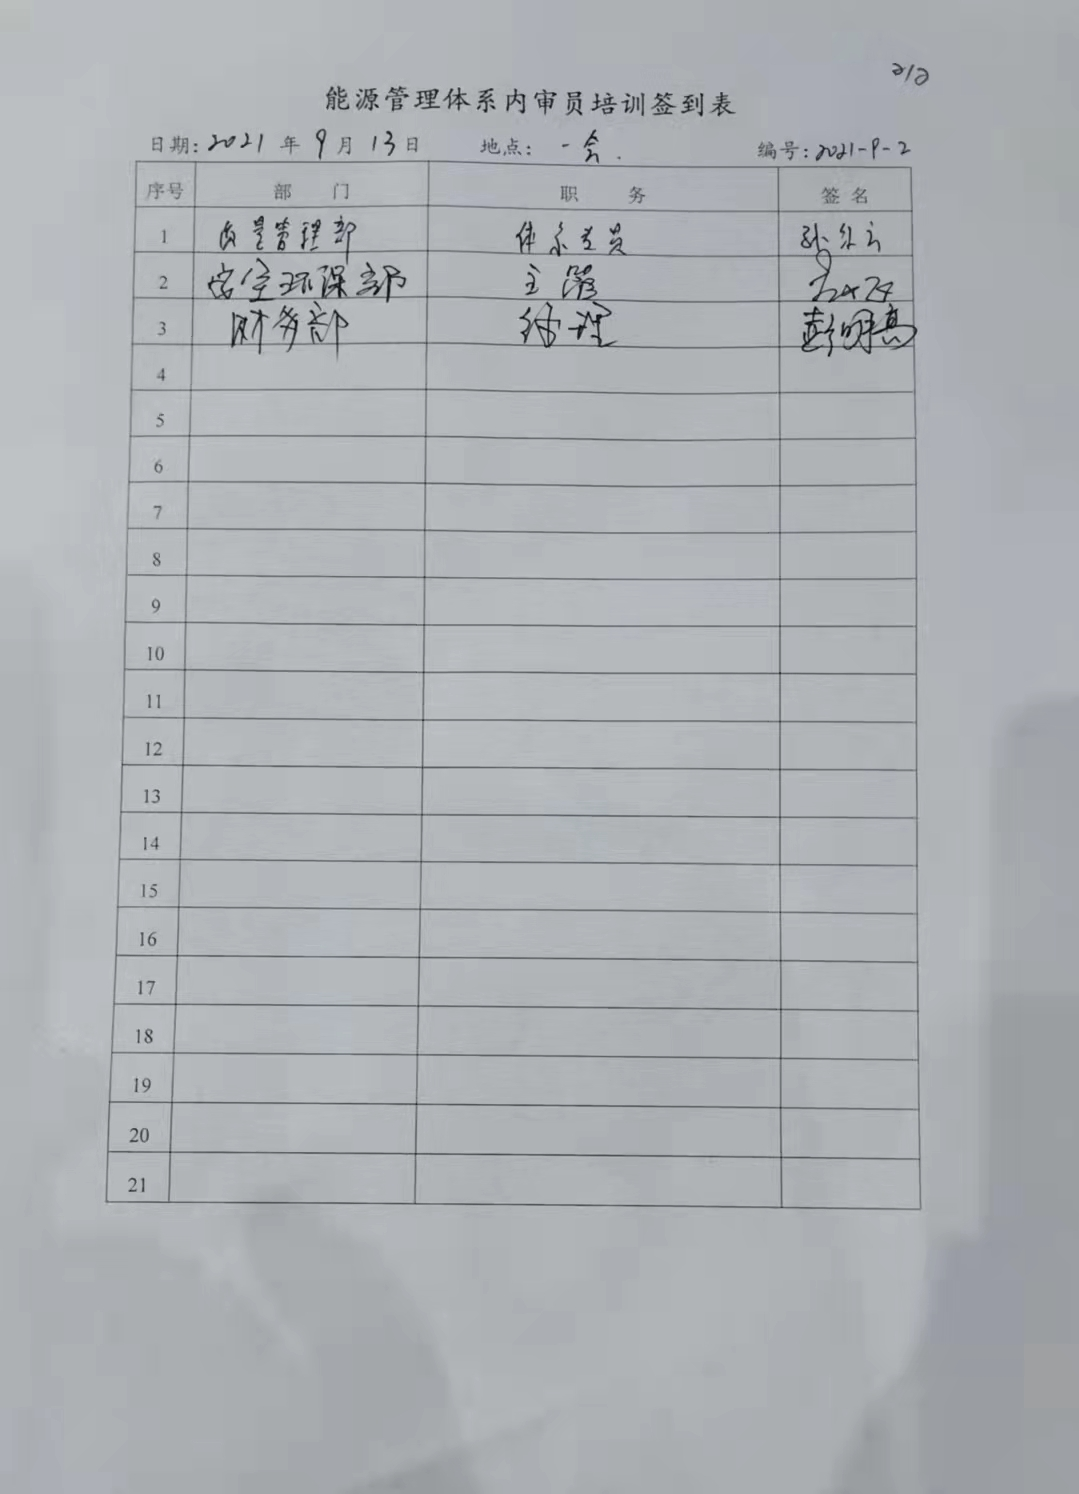 2/2
能源管理体系内审员培训签到表
日期: 2021 年 9 月 13 日 地点: 一会. 编号: 2021-9-2
序号 部 门 职 务 签 名
1 质量管理部 体系专员
2 安全环保部 主管
3 财务部 经理 彭明高
4
5
6
7
8
9
10
11
12
13
14
15
16
17
18
19
20
21